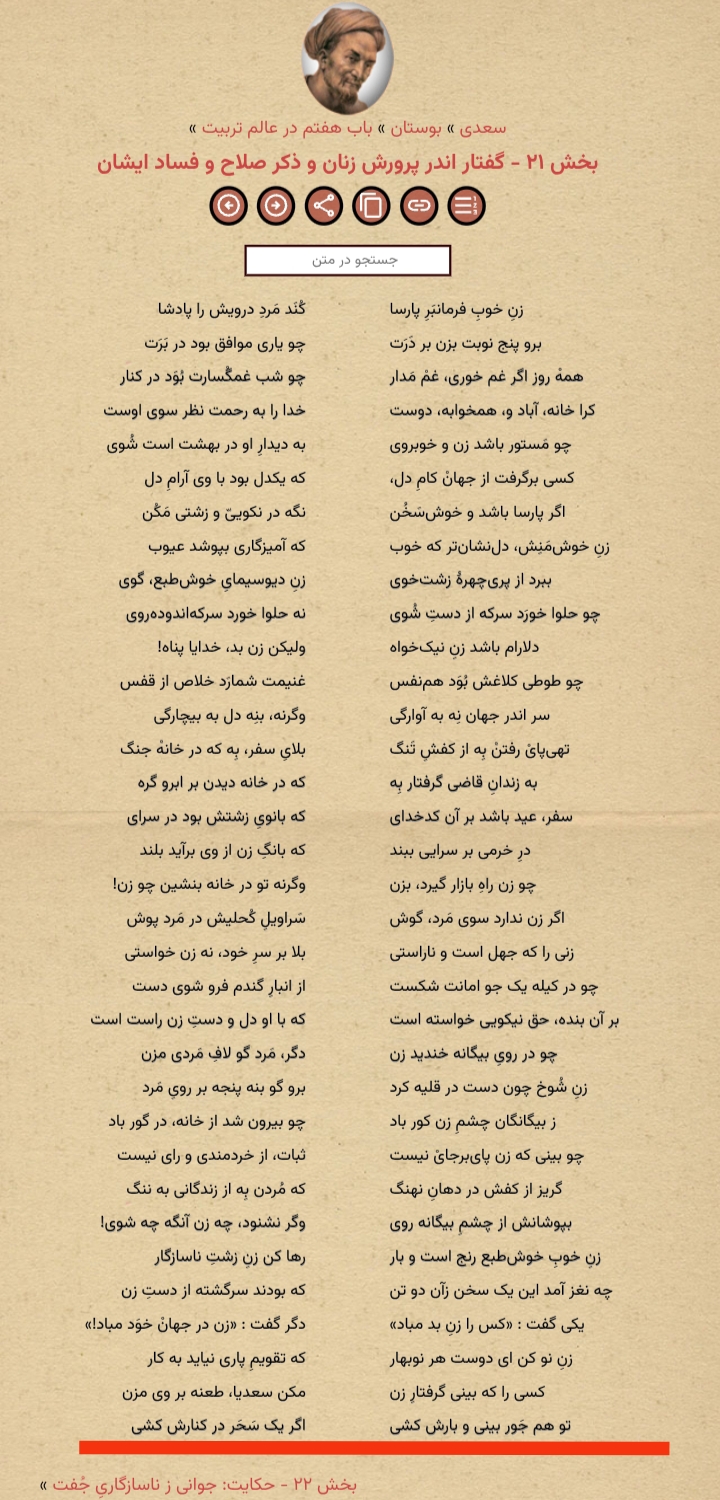 سعدی » بوستان » باب هفتم در عالم تربیت »
بخش ۲۱ - گفتار اندر پرورش زنان و ذکر صلاح و فساد ایشان
جستجو در متن
زنِ خوبِ فرمانبَرِ پارسا کُنَد مَردِ درویش را پادشا
برو پنج نوبت بزن بر دَرَت چو یاری موافق بود در بَرَت
همهْ روز اگر غم خوری، غمْ مَدار چو شب غمگُسارت بُوَد در کنار
کرا خانه، آباد و، همخوابه، دوست خدا را به رحمت نظر سوی اوست
چو مَستور باشد زن و خوبروی به دیدارِ او در بهشت است شُوی
کسی برگرفت از جهانْ کامِ دل، که یکدل بود با وی آرامِ دل
اگر پارسا باشد و خوش‌سَخُن نگه در نکوییّ و زشتی مَکُن
زنِ خوش‌مَنِش، دل‌نشان‌تر که خوب که آمیزگاری بپوشد عیوب
ببرد از پری‌چهرهٔ زشت‌خوی زنِ دیوسیمایِ خوش‌طبع، گوی
چو حلوا خورَد سرکه از دستِ شُوی نه حلوا خورد سرکه‌اندوده‌روی
دلارام باشد زنِ نیک‌خواه ولیکن زن بد، خدایا پناه!
چو طوطی کلاغش بُوَد هم‌نفس غنیمت شمارَد خلاص از قفس
سر اندر جهان نِه به آوارگی وگرنه، بنِه دل به بیچارگی
تهی‌پایْ رفتنْ بِه از کفشِ تَنگ بلایِ سفر، بِه که در خانهْ جنگ
به زندانِ قاضی گرفتار بِه که در خانه دیدن بر ابرو گره
سفر، عید باشد بر آن کدخدای که بانویِ زشتش بود در سرای
درِ خرمی بر سرایی ببند که بانگِ زن از وی برآید بلند
چو زن راهِ بازار گیرد، بزن وگرنه تو در خانه بنشین چو زن!
اگر زن ندارد سوی مَرد، گوش سَراویلِ کُحلیش در مَرد پوش
زنی را که جهل است و ناراستی بلا بر سرِ خود، نه زن خواستی
چو در کیله یک جو امانت شکست از انبارِ گندم فرو شوی دست
بر آن بنده، حق نیکویی خواسته است که با او دل و دستِ زن راست است
چو در رویِ بیگانه خندید زن دگر، مَرد گو لافِ مَردی مزن
زنِ شُوخ چون دست در قلیه کرد برو گو بنه پنجه بر رویِ مَرد
ز بیگانگان چشمِ زن کور باد چو بیرون شد از خانه، در گور باد
چو بینی که زن پای‌برجایْ نیست ثبات، از خردمندی و رای نیست
گریز از کفش در دهانِ نهنگ که مُردن بِه از زندگانی به ننگ
بپوشانش از چشمِ بیگانه روی وگر نشنود، چه زن آنگه چه شوی!
زنِ خوبِ خوش‌طبع رنج است و بار رها کن زنِ زشتِ ناسازگار
چه نغز آمد این یک سخن زآن دو تن که بودند سرگشته از دستِ زن
یکی گفت : «کس را زنِ بد مباد» دگر گفت : «زن در جهانْ خوَد مباد!»
زنِ نو کن ای دوست هر نوبهار که تقویمِ پاری نیاید به کار
کسی را که بینی گرفتارِ زن مکن سعدیا، طعنه بر وی مزن
تو هم جَور بینی و بارش کشی اگر یک سَحَر در کنارش کشی
بخش ۲۲ - حکایت: جوانی ز ناسازگاریِ جُفت »